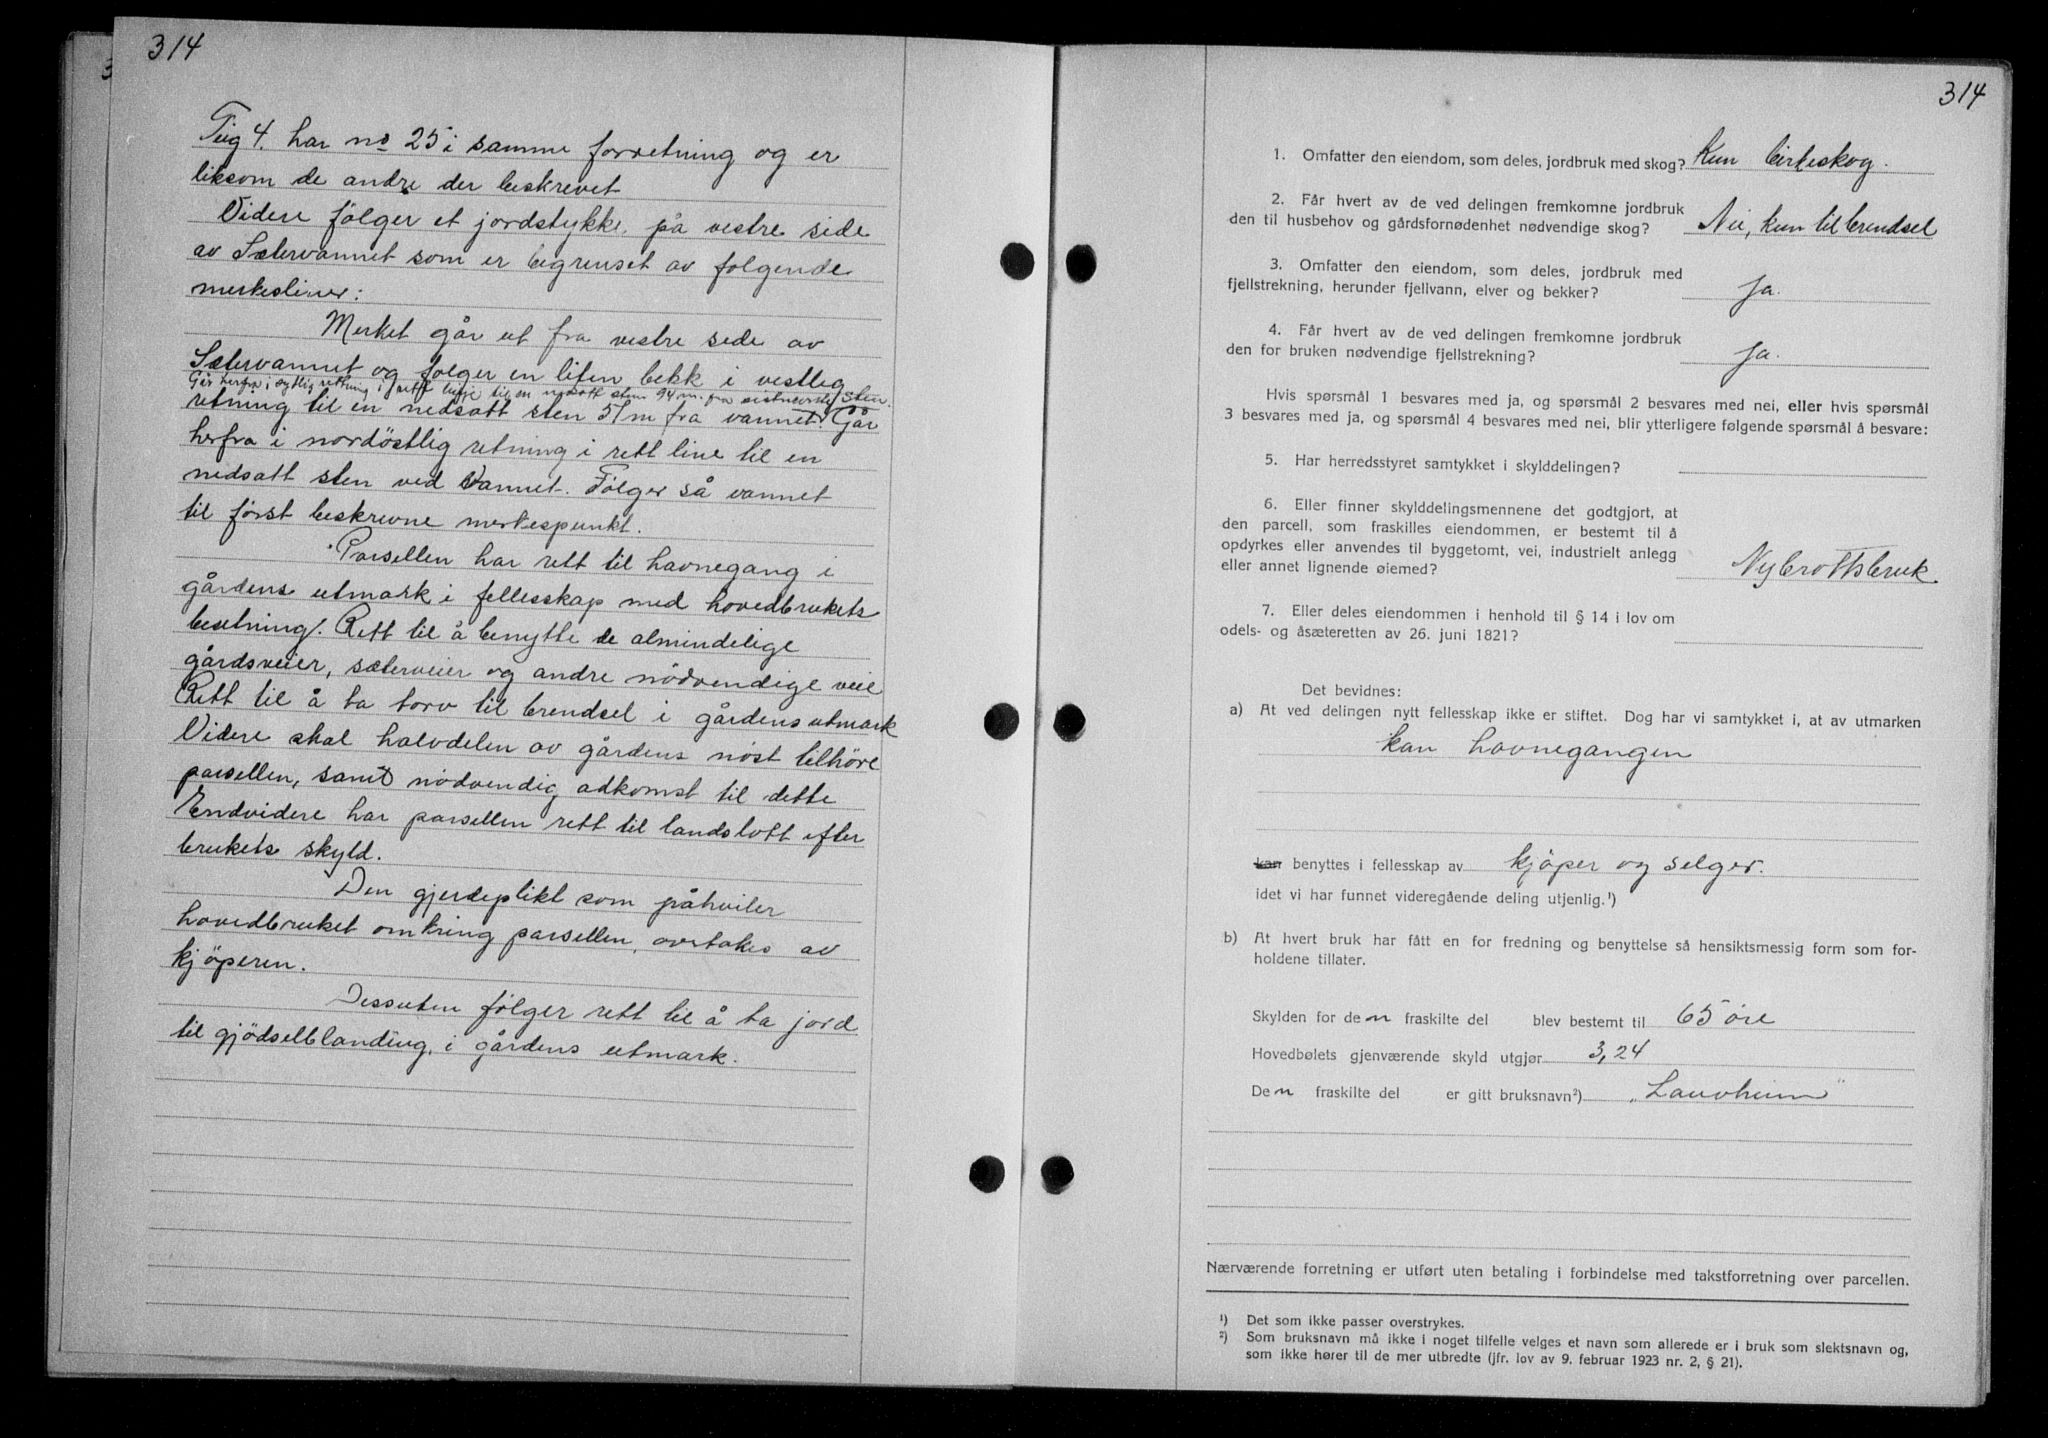 314
Teig 4. har no 25 i samme forretning og er
liksom de andre der beskrevet
Videre følger et jordstykke på vestre side
av Sætervannet som er begrenset av følgende
merkesliner:
Merket går ut fra vestre side av
Sætervannet og følger en liten bekk i vestleg
Går herfra i sydlig retning i rett linje til en nedsatt sten 94 m. fra sistnevnte sten.
retning til en nedsatt sten 51 m fra vannet. Går
herfra i nordöstlig retning i rett line til en
nedsatt sten ved Vannet. Følger så vannet
til først beskrevne merkespunkt.
Parsellen har rett til havnegang i
gårdens utmark i fellesskap med hovedbrukets
besetning. Rett til å benytte de almindelige
gårdsveier, sæterveier og andre nödvendige veie
Rett til å ta torv til brendsel i gårdens utmark
Videre skal halvdelen av gårdens nöst tilhöre
parsellen, samt nödvendig adkomst til dette
Endvidere har parsellen rett til landslott efter
brukets skyld.
Den gjerdeplikt som påhviler
hovedbruket omkring parsellen, overtakes av
kjöperen.
Dessuten følger rett til å ta jord
til gjödselblanding, i gårdens utmark.
314
1. Omfatter den eiendom, som deles, jordbruk med skog? Kun birkeskog.
2. Får hvert av de ved delingen fremkomne jordbruk
den til husbehov og gårdsfornødenhet nødvendige skog? Nei, kun til brendsel
3. Omfatter den eiendom, som deles, jordbruk med
fjellstrekning, herunder fjellvann, elver og bekker? Ja.
4. Får hvert av de ved delingen fremkomne jordbruk
den for bruken nødvendige fjellstrekning? Ja.
Hvis spørsmål 1 besvares med ja, og spørsmål 2 besvares med nei, eller hvis spørsmål
3 besvares med ja, og spørsmål 4 besvares med nei, blir ytterligere følgende spørsmål å besvare:
5. Har herredsstyret samtykket i skylddelingen?
6. Eller finner skylddelingsmennene det godtgjort, at
den parcell, som fraskilles eiendommen, er bestemt til å
opdyrkes eller anvendes til byggetomt, vei, industrielt anlegg
eller annet lignende øiemed? Nybrottsbruk
7. Eller deles eiendommen i henhold til § 14 i lov om
odels- og åsæteretten av 26. juni 1821?
Det bevidnes:
a) At ved delingen nytt fellesskap ikke er stiftet. Dog har vi samtykket i, at av utmarken
kan havnegangen
kan benyttes i fellesskap av kjøper og selger.
idet vi har funnet videregående deling utjenlig.¹)
b) At hvert bruk har fått en for fredning og benyttelse så hensiktsmessig form som for-
holdene tillater.
Skylden for den fraskilte del blev bestemt til 65 öre
Hovedbølets gjenværende skyld utgjør 3,24
Den fraskilte del er gitt bruksnavn²) „Lauvheim"
Nærværende forretning er utført uten betaling i forbindelse med takstforretning over parcellen.
¹) Det som ikke passer overstrykes.
²) Som bruksnavn må ikke i noget tilfelle velges et navn som allerede er i bruk som slektsnavn og,
som ikke hører til de mer utbredte (jfr. lov av 9. februar 1923 nr. 2, § 21).